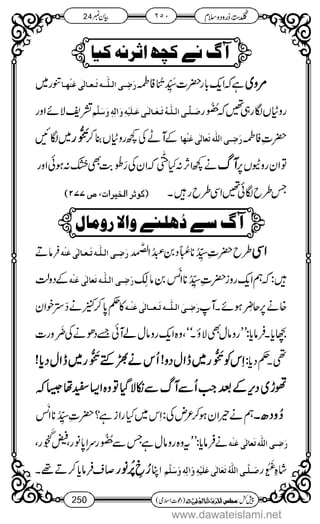 گلدستۂ دُرُود و سلام ۲۵۰ بیان نمبر 24
آگ نے کچھ اثر نہ کیا
مروی ہے کہ ایک بار حضرت سَیِّدَتُنا فاطمہ رَضِیَ اللہُ تَعَالٰی عَنْہَا تنور میں
روٹیاں لگا رہی تھیں کہ حُضُور صَلَّی اللہُ تَعَالٰی عَلَیْہِ وَاٰلِہٖ وَسَلَّم تشریف لائے اور
حضرتِ فاطمہ رَضِیَ اللہُ تَعَالٰی عَنْہَا کے آٹے کی کچھ روٹیاں بنا کر تَنُّور میں لگائیں
تو ان روٹیوں پر آگ نے کچھ اثر نہ کیا حتّٰی کہ ان کی رَطُوبت بھی خشک نہ ہوئی اور
جس طرح لگائی تھیں اسی طرح رہیں۔ (کوثر الخیرات، ص ۲۷۷)
آگ سے دُھلنے والا رومال
اسی طرح حضرتِ سَیِّدُنا عَبّاد بن عبدُ الصَّمَد رَضِیَ اللہُ تَعَالٰی عَنْہ فرماتے
ہیں: کہ ہم ایک روز حضرت سَیِّدُنا اَنَس بن مالِک رَضِیَ اللہُ تَعَالٰی عَنْہ کے دولت
خانے پر حاضِر ہوئے۔ آپ رَضِیَ اللہُ تَعَالٰی عَنْہ کا حکم پا کر کنیز نے دَسترخوان
بچھایا۔ فرمایا: ’’رومال بھی لاؤ۔‘‘ وہ ایک رومال لے آئی جسے دھونے کی ضَرورت
تھی۔ حکم دیا: اِس کو تَنُّور میں ڈال دو! اُس نے بھڑکتے تَنُّور میں ڈال دیا!
تھوڑی دیر کے بعد جب اُسے آگ سے نکالا گیا تو وہ ایسا سفید تھا جیسا کہ
دُودھ۔ ہم نے حیران ہو کر عرض کی: اِس میں کیا راز ہے؟ حضرتِ سَیِّدُنا اَنَس
رَضِیَ اللہُ تَعَالٰی عَنْہ نے فرمایا: ’’یہ وہ رومال ہے جس سے حُضُور سراپا نور، فیض گنجور،
شاہِ غَیُور صَلَّی اللہُ تَعَالٰی عَلَیْہِ وَاٰلِہٖ وَسَلَّم اپنا رُخِ پُر نُور صاف فرمایا کرتے تھے۔
پیش کش: مجلس المدینۃ العلمیۃ (دعوتِ اسلامی) 250
www.dawateislami.net